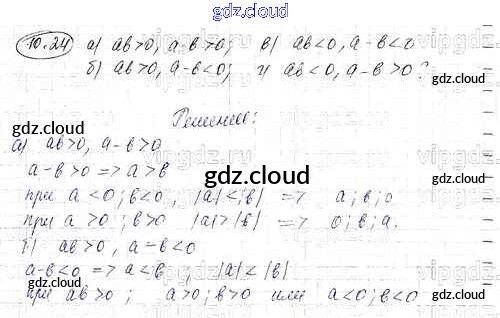 gdz.cloud
10.24 а) ab>0, a-b>0; в) ab<0, a-b<0
б) ab>0, a-b<0; г) ab<0, a-b>0?
gdz.cloud
Решение:
gdz.cloud
а) ab>0, a-b>0
a-b>0 => a>b
gdz.cloud
при a<0; b<0, |a|<|b| => a; b; 0
при a>0; b>0 |a|>|b| => 0; b; a.
б) ab>0, a-b<0
a-b<0 => a<b, |a|<|b|
при ab>0; a>0; b>0 или a<0; b<0
gdz.cloud